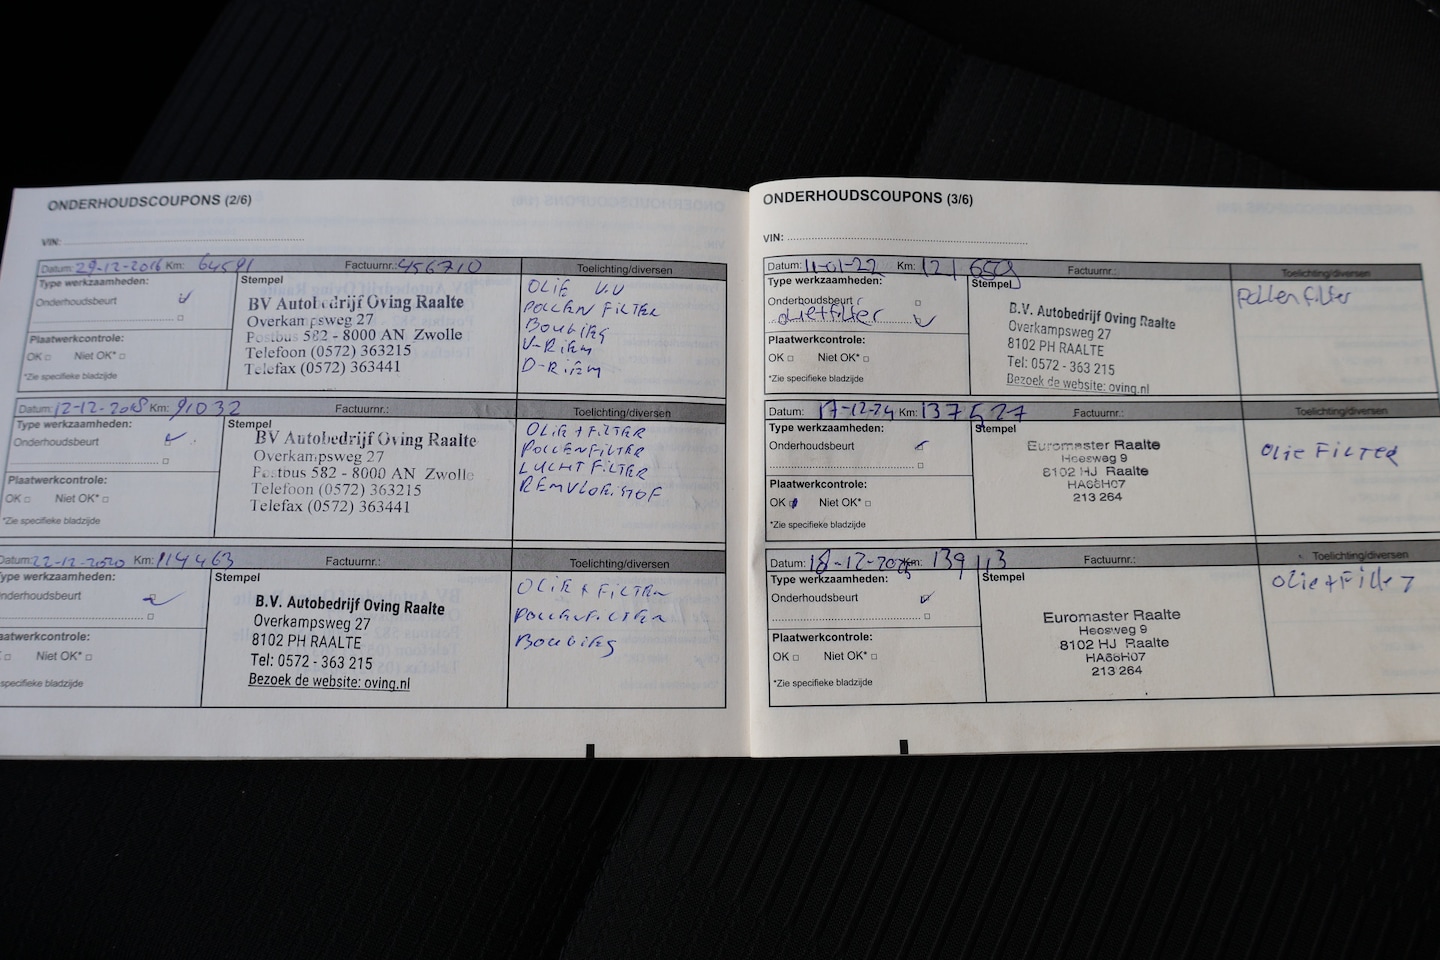 ONDERHOUDSCOUPONS (2/6)
VIN:
Datum: 29-12-2016 Km: 64591 Factuurnr.: 456710 Toelichting/diversen
Type werkzaamheden:
Onderhoudsbeurt
Plaatwerkcontrole:
OK Niet OK*
*Zie specifieke bladzijde
Stempel
BV Autobedrijf Oving Raalte
Overkampsweg 27
Postbus 582 - 8000 AN Zwolle
Telefoon (0572) 363215
Telefax (0572) 363441
OLIE
POLLEN FILTER
BOUGIES
V-RIEM
D-RIEM
Datum: 12-12-2018 Km: 91032 Factuurnr.: Toelichting/diversen
Type werkzaamheden:
Onderhoudsbeurt
Plaatwerkcontrole:
OK Niet OK*
*Zie specifieke bladzijde
Stempel
BV Autobedrijf Oving Raalte
Overkampsweg 27
Postbus 582 - 8000 AN Zwolle
Telefoon (0572) 363215
Telefax (0572) 363441
OLIE + FILTER
POLLENFILTER
LUCHTFILTER
REMVLOEISTOF
Datum: 22-12-2020 Km: 114463 Factuurnr.: Toelichting/diversen
Type werkzaamheden:
nderhoudsbeurt
aatwerkcontrole:
Niet OK*
specifieke bladzijde
Stempel
B.V. Autobedrijf Oving Raalte
Overkampsweg 27
8102 PH RAALTE
Tel: 0572 - 363 215
Bezoek de website: oving.nl
OLIE + FILTER
POLLENFILTER
BOUGIES
ONDERHOUDSCOUPONS (3/6)
VIN:
Datum: 11-01-22 Km: Factuurnr.: Toelichting/diversen
Type werkzaamheden:
Onderhoudsbeurt
Plaatwerkcontrole:
OK Niet OK*
*Zie specifieke bladzijde
Stempel
B.V. Autobedrijf Oving Raalte
Overkampsweg 27
8102 PH RAALTE
Tel: 0572 - 363 215
Bezoek de website: oving.nl
pollenfilter
Datum: 17-12-24 Km: 137527 Factuurnr.: Toelichting/diversen
Type werkzaamheden:
Onderhoudsbeurt
Plaatwerkcontrole:
OK Niet OK*
*Zie specifieke bladzijde
Stempel
Euromaster Raalte
Heesweg 9
8102 HJ Raalte
213 264
OLIE FILTER
Datum: Km: 139113 Factuurnr.: Toelichting/diversen
Type werkzaamheden:
Onderhoudsbeurt
Plaatwerkcontrole:
OK Niet OK*
*Zie specifieke bladzijde
Stempel
Euromaster Raalte
Heesweg 9
8102 HJ Raalte
213 264
Olie + Filter